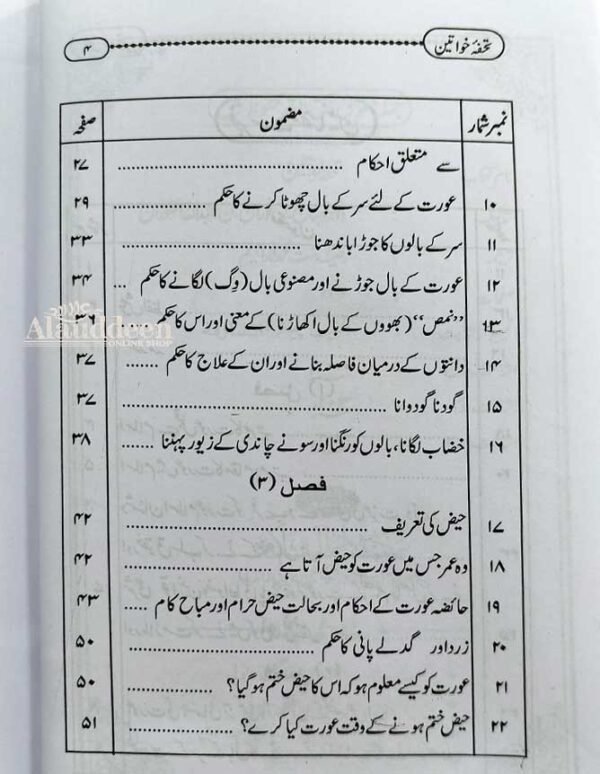 تحفۂ خواتین ۴
نمبر شمار مضمون صفحہ
سے متعلق احکام ........................................ ۲۷
۱۰ عورت کے لئے سر کے بال چھوٹا کرنے کا حکم ................ ۲۹
۱۱ سر کے بالوں کا جوڑا باندھنا ............................ ۳۳
۱۲ عورت کے بال جوڑنے اور مصنوعی بال (وِگ) لگانے کا حکم ... ۳۴
۱۳ ”نمص“ (بھووں کے بال اکھاڑنا) کے معنی اور اس کا حکم ...... ۳۶
Alauddeen
ONLINE SHOP
۱۴ دانتوں کے درمیان فاصلہ بنانے اور ان کے علاج کا حکم ....... ۳۷
۱۵ گودنا گودوانا ........................................ ۳۷
۱۶ خضاب لگانا، بالوں کو رنگنا اور سونے چاندی کے زیور پہننا ........ ۳۸
فصل (۳)
۱۷ حیض کی تعریف ........................................ ۴۲
۱۸ وہ عمر جس میں عورت کو حیض آتا ہے ........................ ۴۲
۱۹ حائضہ عورت کے احکام اور بحالت حیض حرام اور مباح کام ..... ۴۳
۲۰ زرد اور گدلے پانی کا حکم ................................ ۵۰
۲۱ عورت کو کیسے معلوم ہو کہ اس کا حیض ختم ہو گیا؟ ............... ۵۰
۲۲ حیض ختم ہونے کے وقت عورت کیا کرے؟ ................... ۵۱